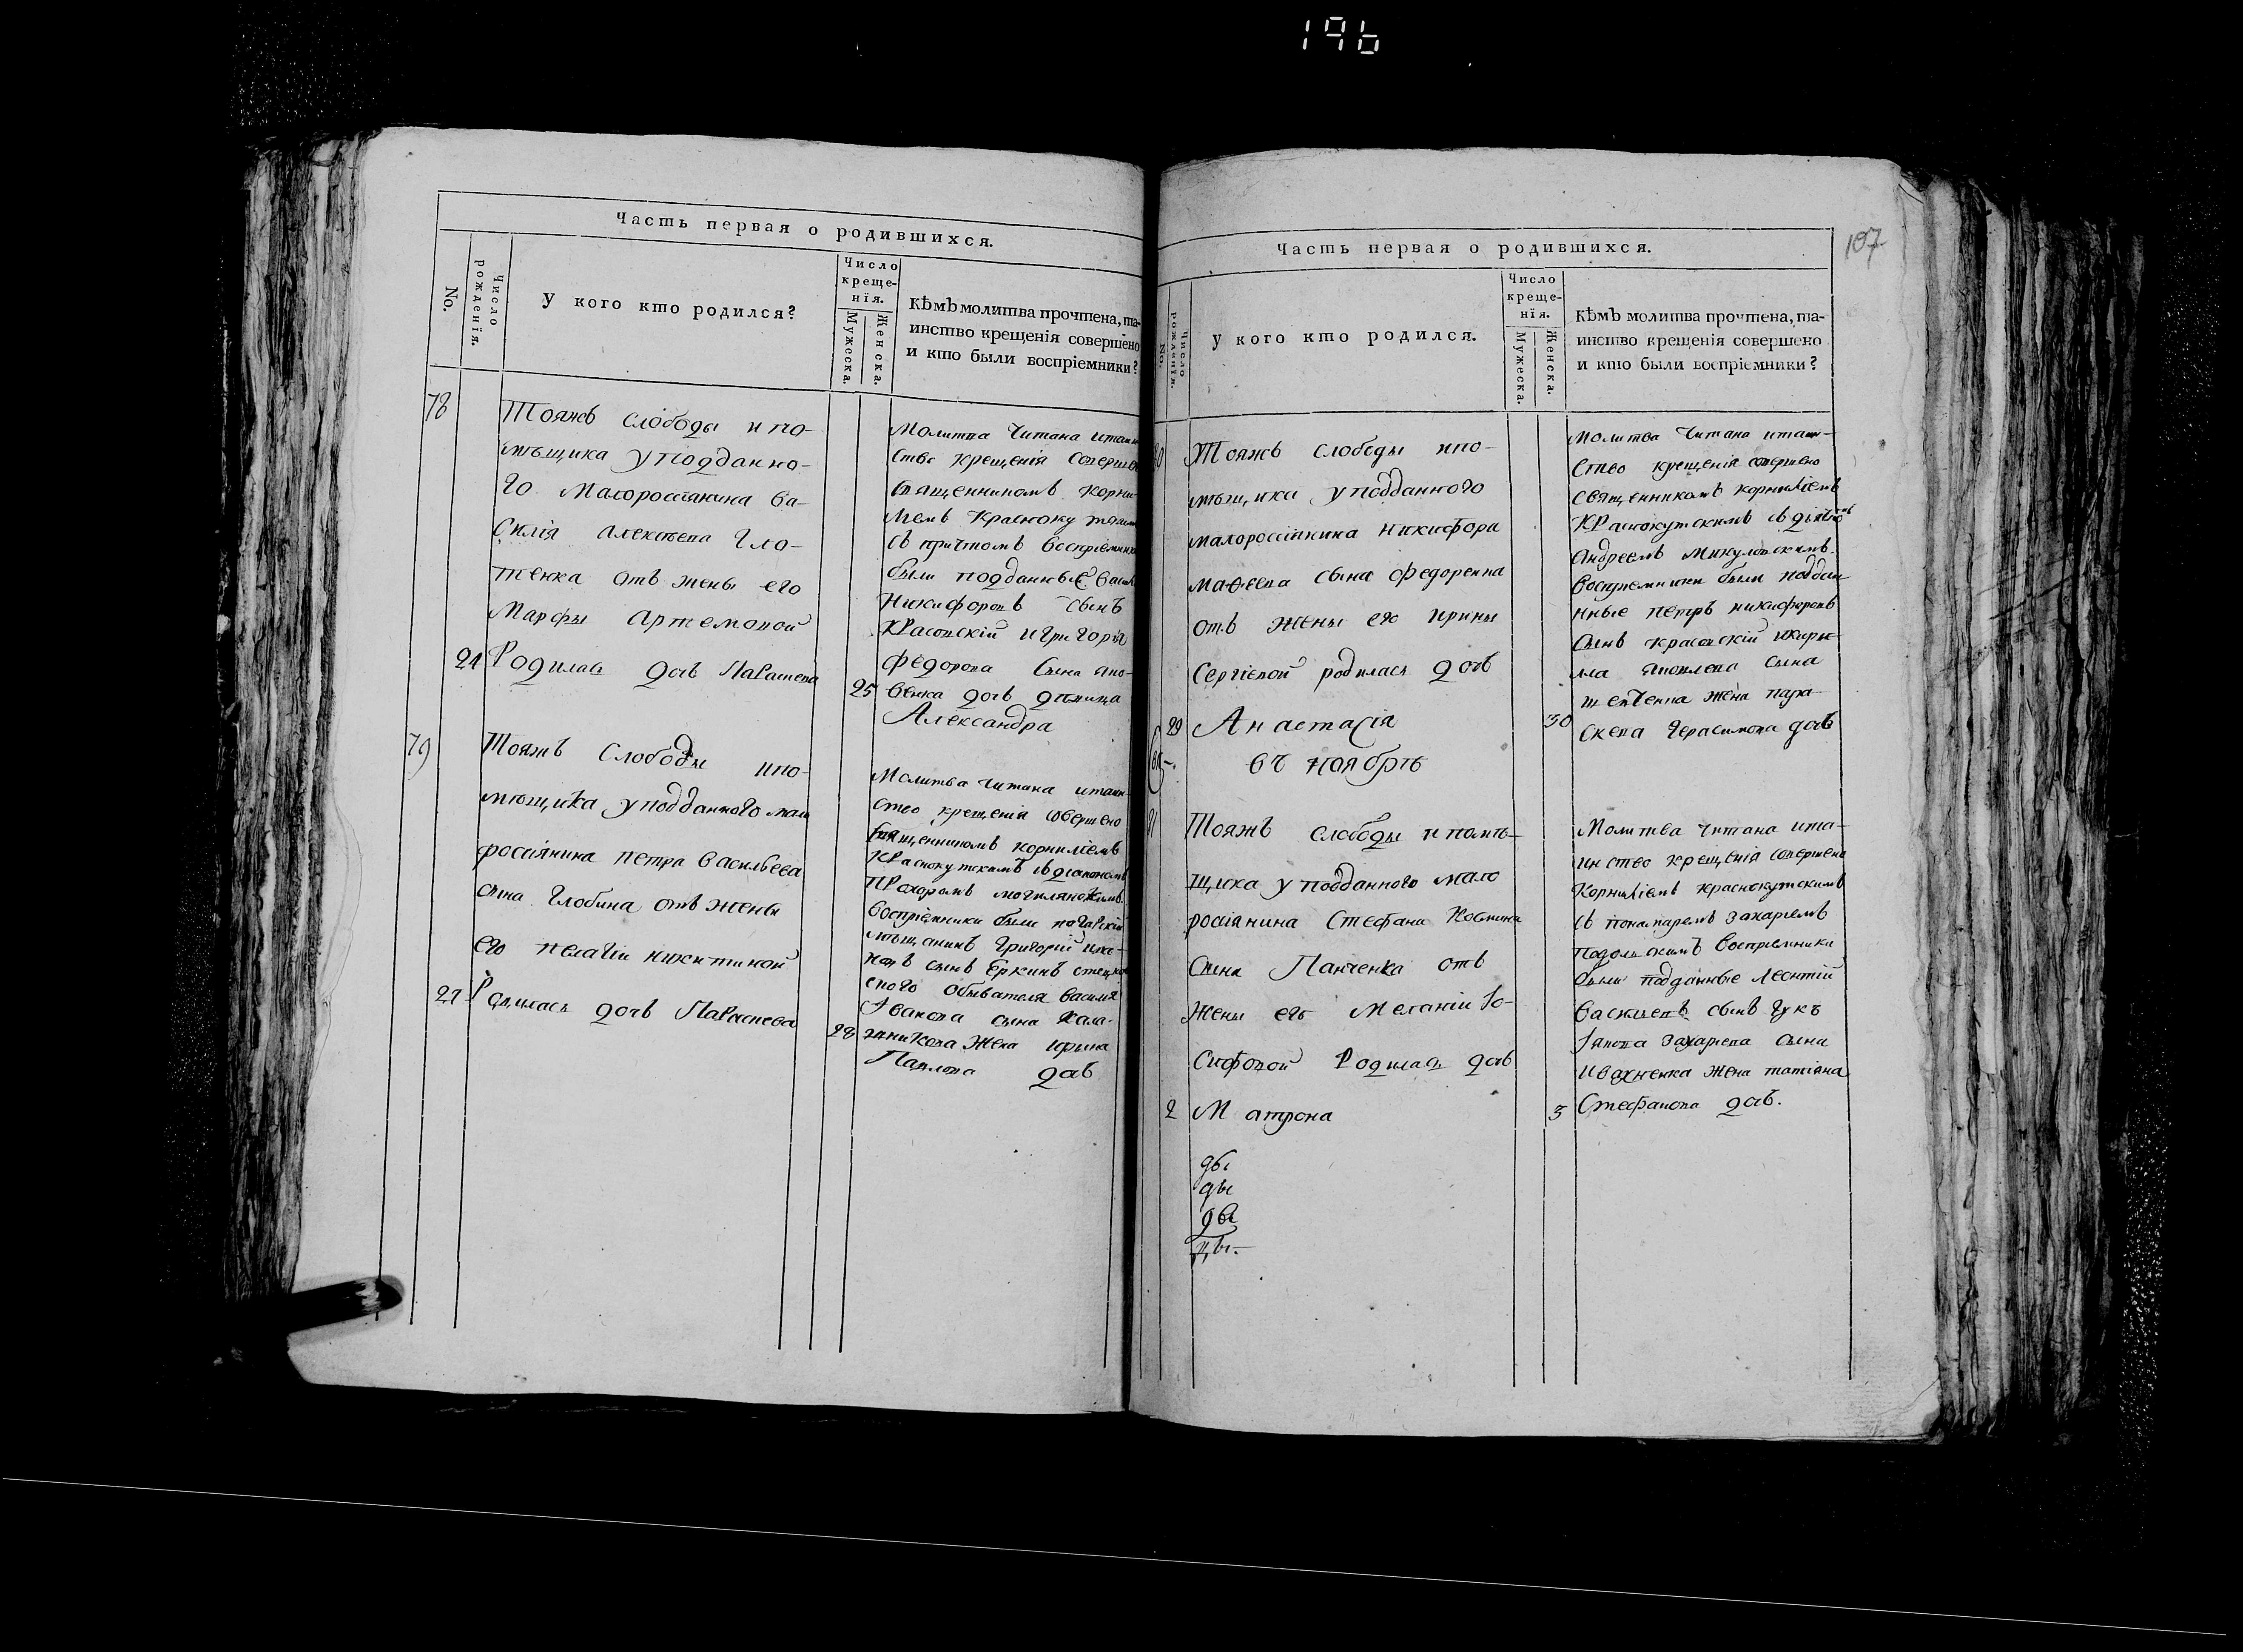 196
Часть первая о родившихся.
No.
Число рожденія.
У кого кто родился?
Число креще-
нія.
Мужеска.
Женска.
Кѣмъ молитва прочтена, та-
инство крещенія совершено
и кто были воспріемники?
78
Тояжъ слободы и по-
мѣщика у подданно-
го малороссіянина ва-
силія алексѣева
тенка отъ жены его
Марфы артемовой
24 Родилась дочь Параскева
Молитва читана итаин
ство крещенія соверше
священникомъ корни
лiемъ краснокутским
съ причтомъ воспріемники
были подданные васил
Никифоровъ сынъ
Красовскій и григорія
федорова сына
25 венка дочь дѣвица
Александра
79
Тояжъ слободы ипо-
мѣщика уподданного мало
россіянина петра васильева
сына глобина отъ жены
его пелагіи никитиной
27 Родилась дочь Параскева
Молитва читана итаин
ство крещенія совершено
священникомъ корниліемъ
Краснокутскимъ съ діакономъ
Прохоромъ
воспріемники были
мѣщанинъ григорій ива-
новъ сынъ еркинъ
ского обывателя василія
Іванова сына кала-
28 жена ирина
Павлова дочь
107
Часть первая о родившихся.
No.
Число рожденія.
У кого кто родился.
Число креще-
нія.
Мужеска.
Женска.
Кѣмъ молитва прочтена, та-
инство крещенія совершено
и кто были воспріемники?
80
Тояжъ слободы ипо-
мѣщика уподданного
малороссіянина никифора
маѳеева сына федоренка
отъ жены его ирины
Сергіевой родилась дочь
29 Анастасія
молитва читана итаин-
ство крещенія совершено
священникомъ корниліемъ
Краснокутскимъ съ діякономъ
андреемъ микуловскимъ.
Воспріемники были поддан
ные петръ никифоровъ
сынъ красовскій икири-
ла яковлева сына
жена пара-
30 скева герасимова дочь
въ ноябрѣ
81
Тояжъ слободы и помѣ-
щика у подданного мало
россіянина Стефана
сына Панченка отъ
жены его меланіи Іо-
сифовой Родилась дочь
2 Матрона
Молитва читана ита-
инство крещенія совершено
Корниліемъ краснокутскимъ
съ понамаремъ захаріемъ
подольскимъ воспріемники
были подданные леонтій
васильевъ сынъ гукъ
Іякова захаріева сына
жена татіана
3 Стефанова дочь.